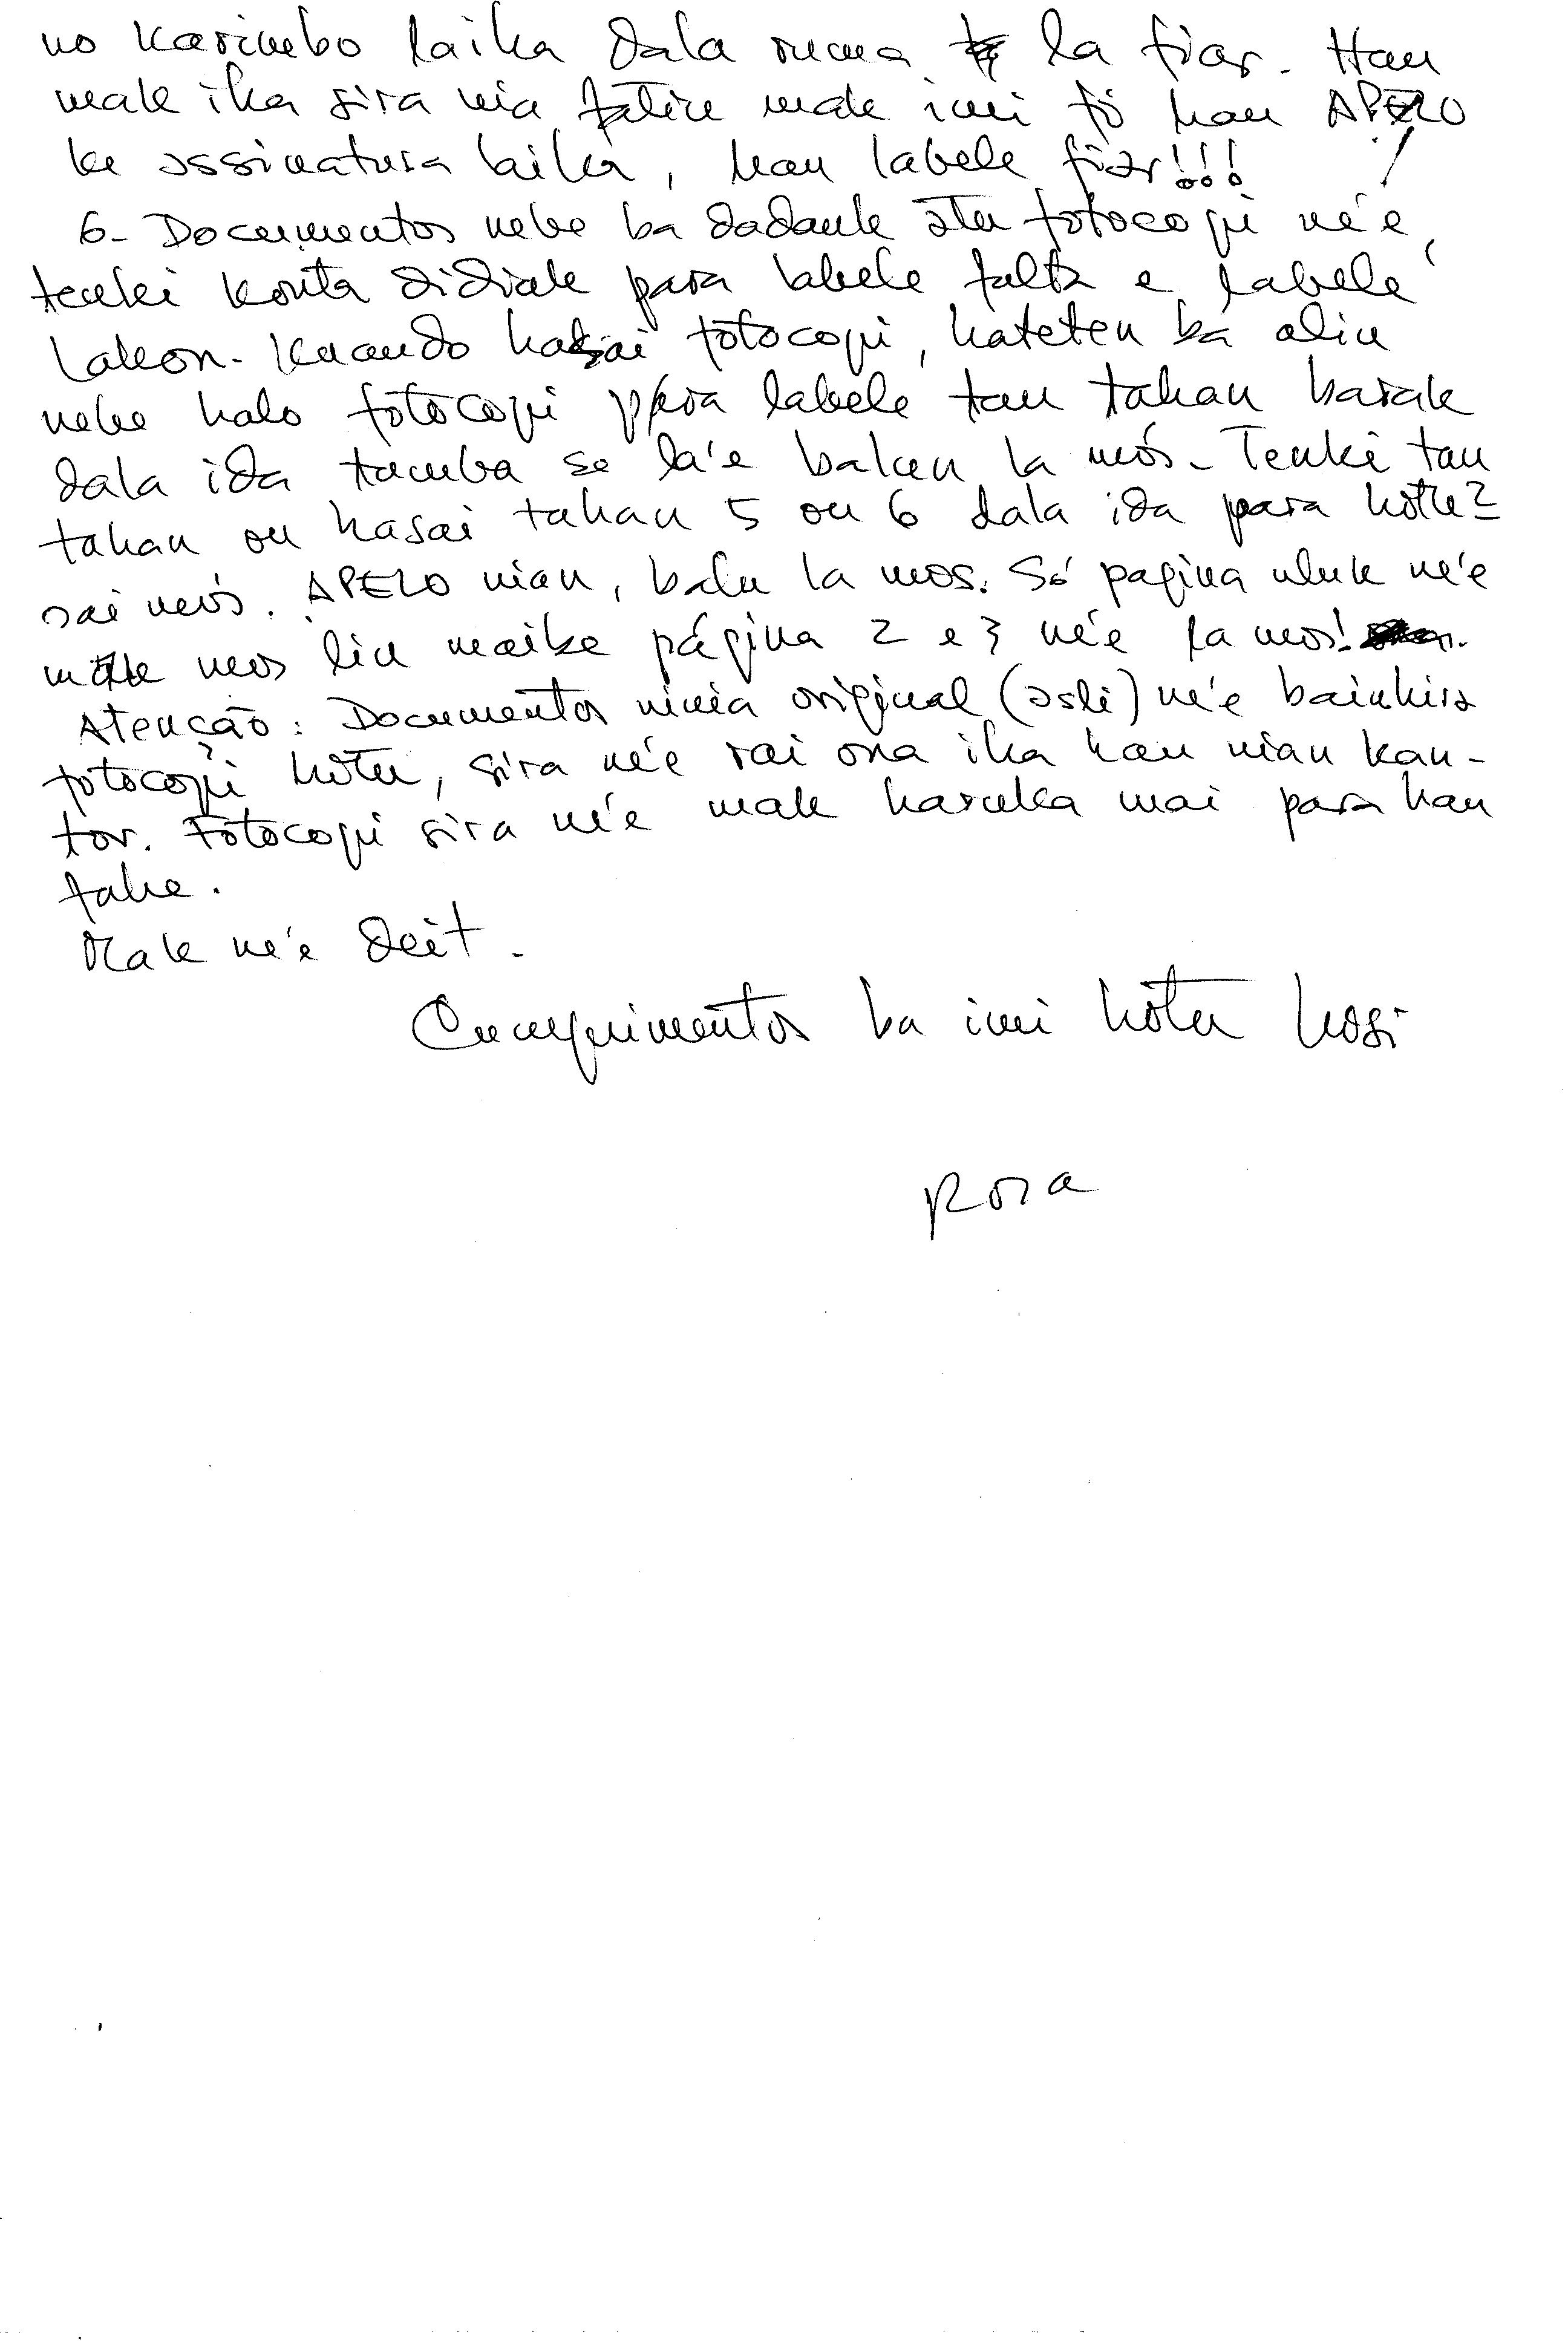 no karimbo laika dala ruma la fiar. Hau
mak ika sira nia fatin mak imi fó hau APELO
ba assinatura laika, hau labele fiar!!!
6- Documentos nebe ba dadauk atu fotocopi né'e,
tenki konta didiak para labele falta e labele
lakon. Kuando hasai fotocopi, hateten ba alin
nebe halo fotocopi para labele tau tahan barak
dala ida tamba se la'e balun la mós. Tenki tau
tahan ou hasai tahan 5 ou 6 dala ida para hotu2
sai mós. APELO nian, balu la mos. Só pagina uluk né'e
mak mos liu maibe página 2 e 3 né'e la mos!
Atenção: Documentos ninia original (asli) né'e bainhira
fotocopi hotu, sira né'e rai ona iha hau nian kan-
tor. Fotocopi sira né'e mak haruka mai para hau
fahe.
Mak né'e deit.
Cumprimentos ba imi hotu hosi
Rosa